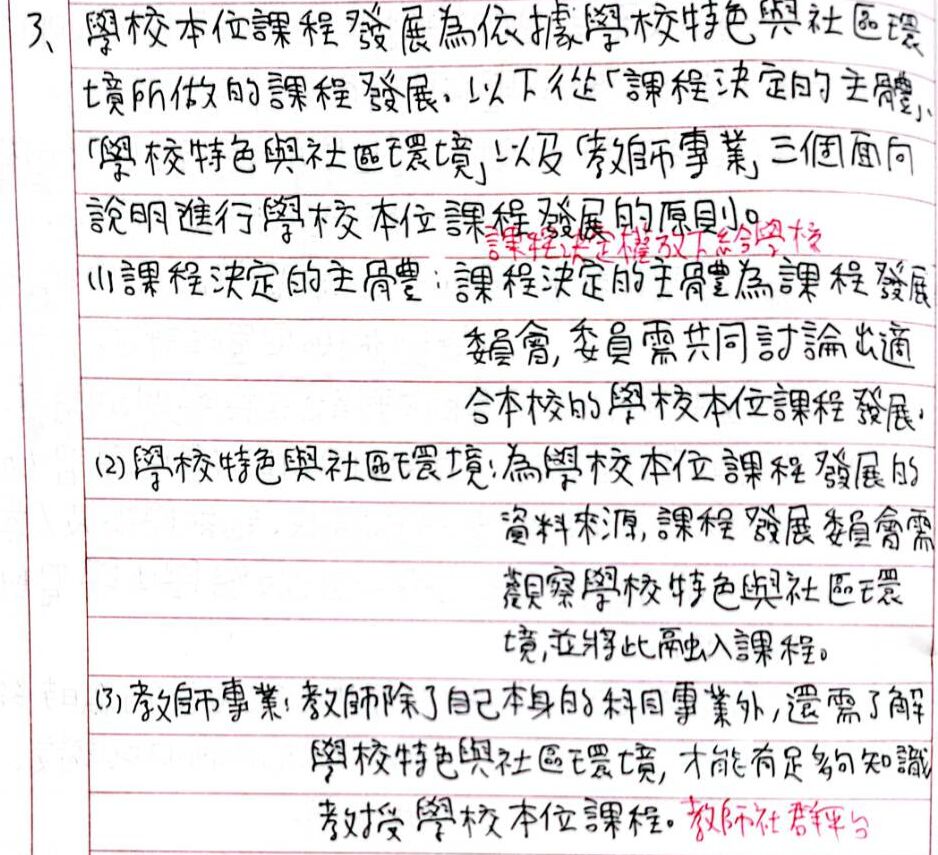 3、學校本位課程發展為依據學校特色與社區環
境所做的課程發展。以下從「課程決定的主體」、
「學校特色與社區環境」以及「教師專業」三個面向
說明進行學校本位課程發展的原則。
課程決定權放下給學校
(1)課程決定的主體：課程決定的主體為課程發展
委員會，委員需共同討論出適
合本校的學校本位課程發展。
(2)學校特色與社區環境：為學校本位課程發展的
資料來源，課程發展委員會需
觀察學校特色與社區環
境，並將此融入課程。
(3)教師專業：教師除了自己本身的科目專業外，還需了解
學校特色與社區環境，才能有足夠知識
教授學校本位課程。教師社群平台